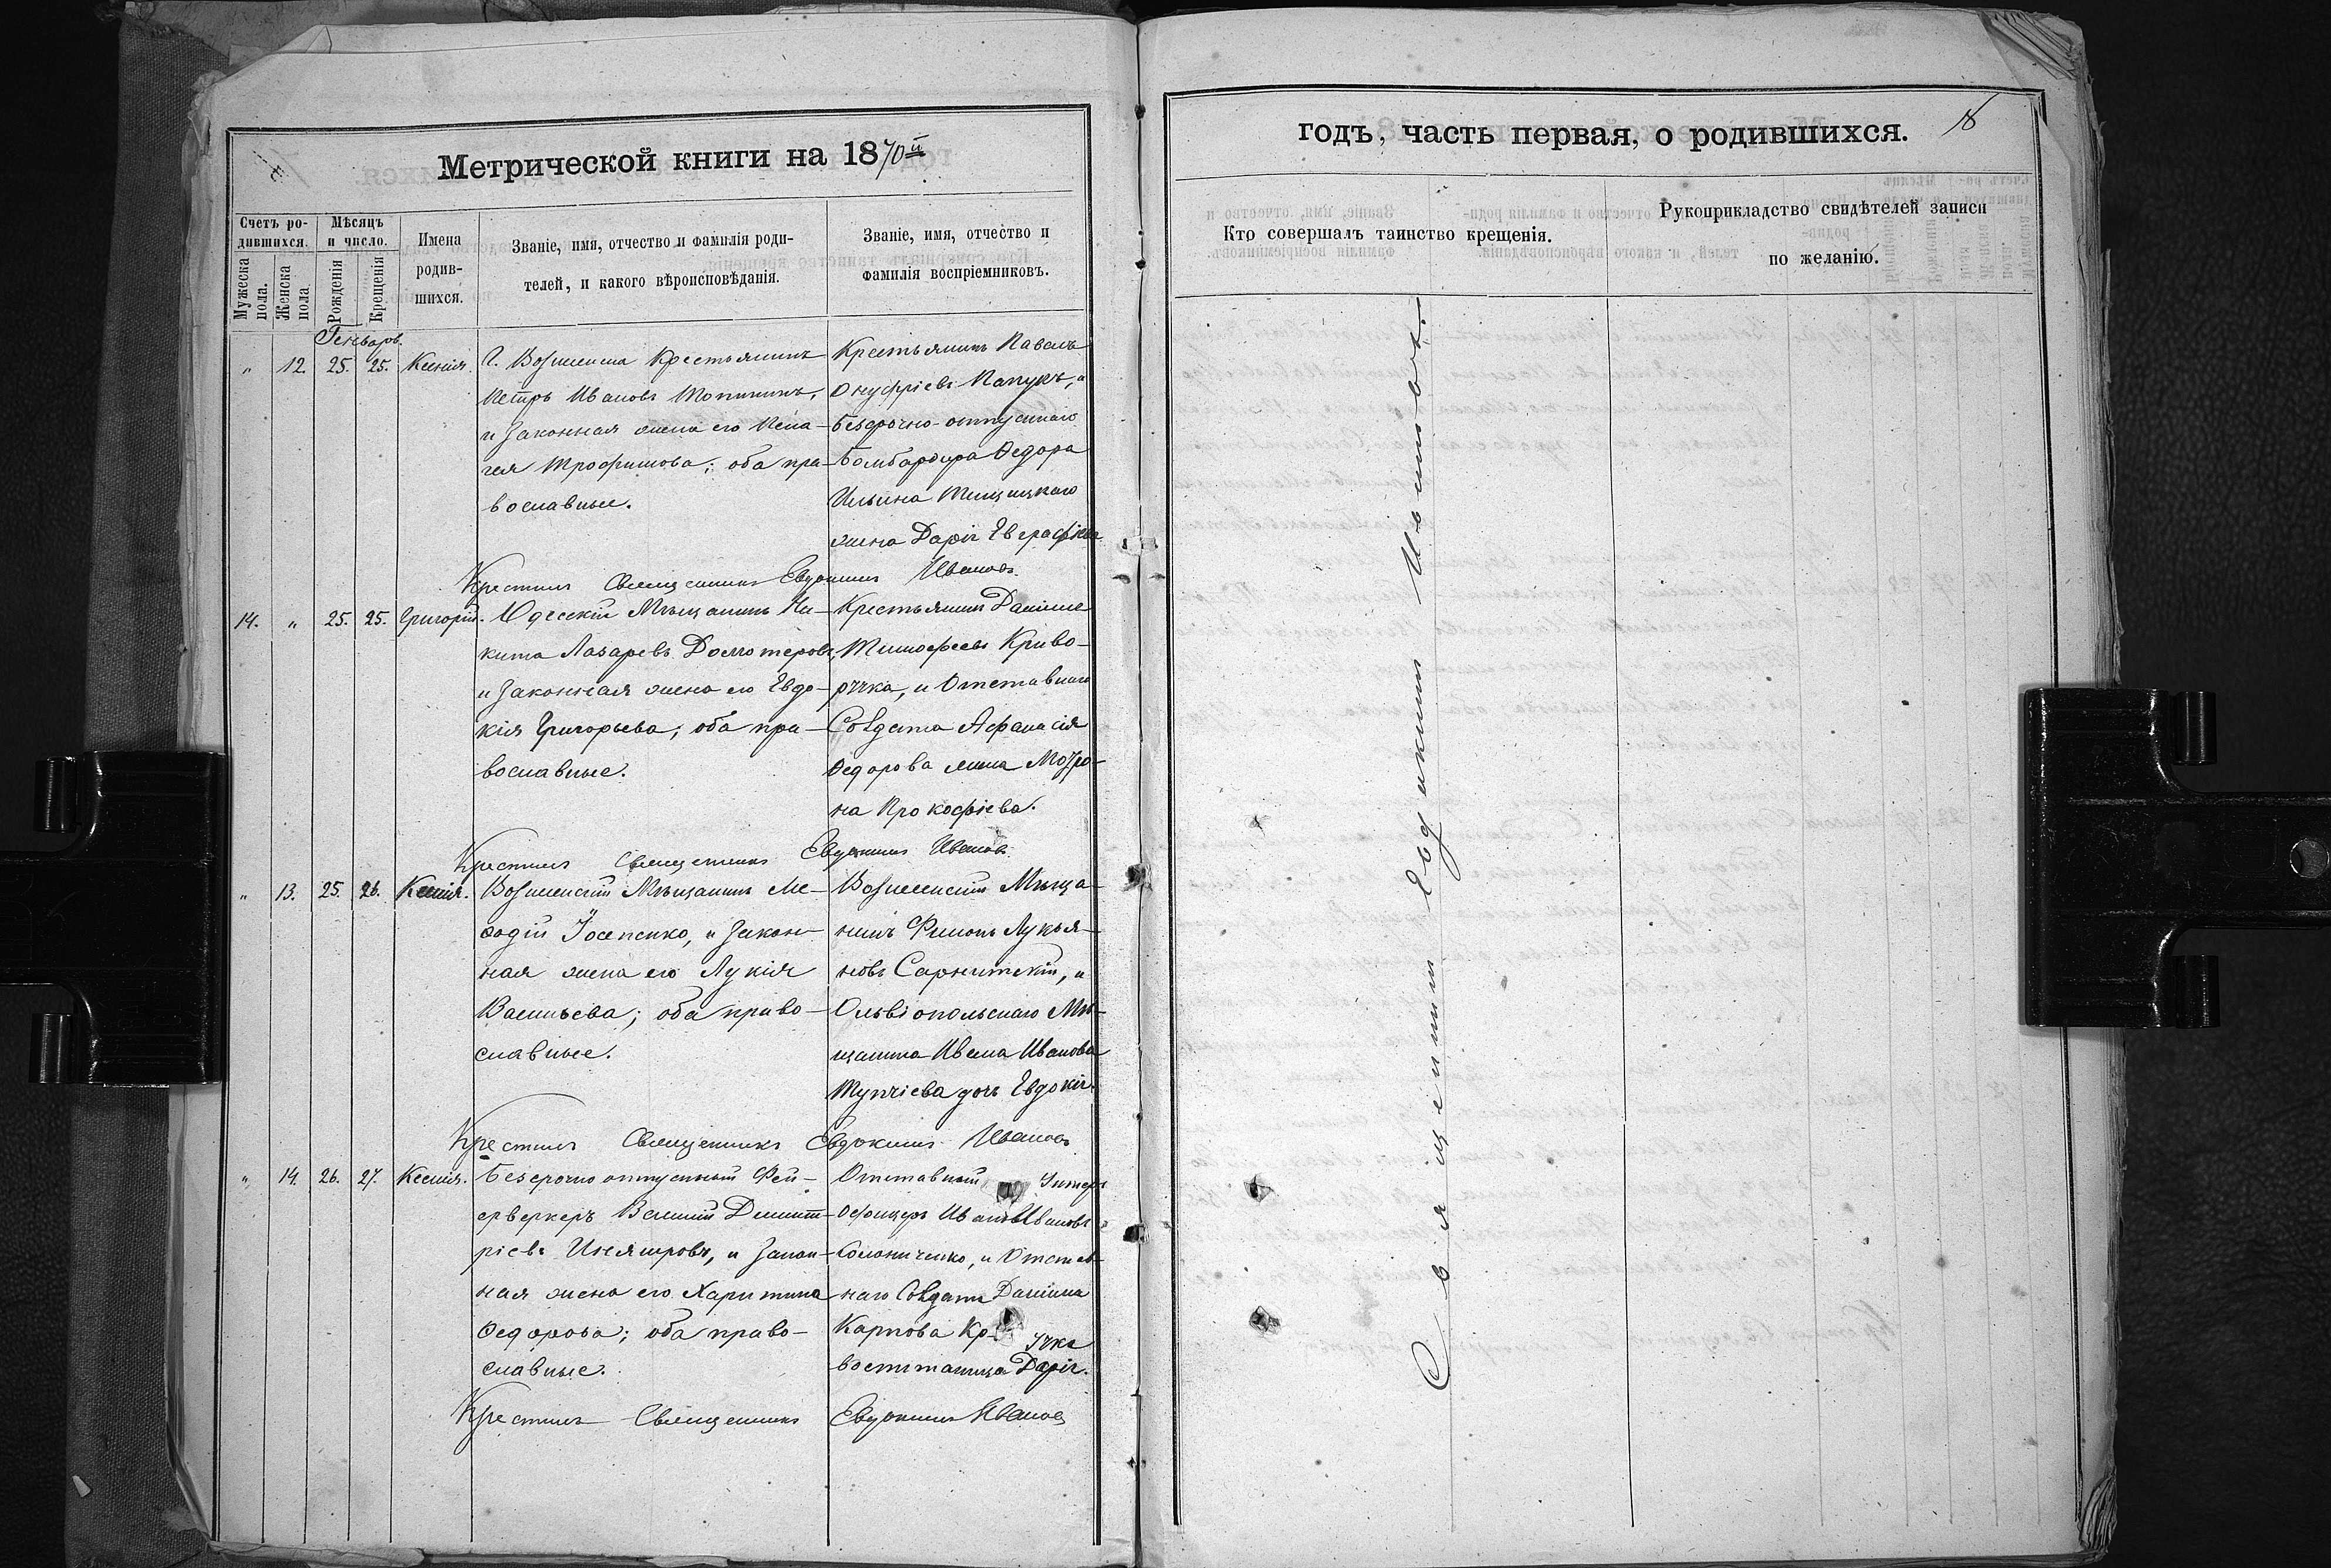 Метрической книги на 1870й
Счетъ ро-
дившихся.
Мужеска
пола.
Женска
пола
Мѣсяцъ
и число.
Рожденія
Крещенія
Имена
родив-
шихся.
Званіе, имя, отчество и фамилія роди-
телей, и какого вѣроисповѣданія.
Званіе, имя, отчество и
фамилія воспріемниковъ.
Генварь.
" 12. 25. 25. Ксенія.
Г. Вознесенска Крестьянинъ
Петръ Ивановъ
и Законная жена его Пела-
гея Трофимова; оба пра-
вославные.
Крестьянинъ Павелъ
Онуфріевъ Папукъ, и
Безсрочно-отпускнаго
Бомбардира Ѳедора
Ильина
жена Дарія
Крестилъ Священникъ Евдокимъ Ивановъ
14. " 25. 25. Григорій.
Одесскій Мѣщанинъ Ни-
кита Лазаревъ
и Законная жена его Евдо-
кія Григорьева; оба пра-
вославные.
Крестьянинъ Даніилъ
Тимофеевъ Криво-
ручка, и Отставнаго
Солдата Афанасія
Ѳедорова жена Мотро-
на Прокофіева.
Крестилъ Священникъ Евдокимъ Ивановъ
" 13. 25. 26. Ксенія.
Вознесенскій Мѣщанинъ Ме-
ѳодій Іосепенко, и Закон-
ная жена его Лукія
Васильева; оба право-
славные.
Вознесенскій Мѣща-
нинъ Филипъ Лукья-
новъ и
Ольвіопольскаго Мѣ-
щанина Ивана Иванова
дочь Евдокія.
Крестилъ Священникъ Евдокимъ Ивановъ
" 14. 26. 27. Ксенія.
Безсрочно отпускный Фей-
ерверкеръ Василій Димит-
ріевъ и Закон-
ная жена его Харитина
Ѳедорова; оба право-
славные.
Отставный Унтеръ
Офицеръ Иванъ Ивановъ
и Отстав-
наго Солдата Даніила
Карпова
воспитанница Дарія.
Крестилъ Священникъ Евдокимъ Ивановъ
годъ, часть первая, о родившихся.
18
Кто совершалъ таинство крещенія.
Рукоприкладство свидѣтелей записи
по желанію.
Священникъ Евдокимъ Ивановъ.